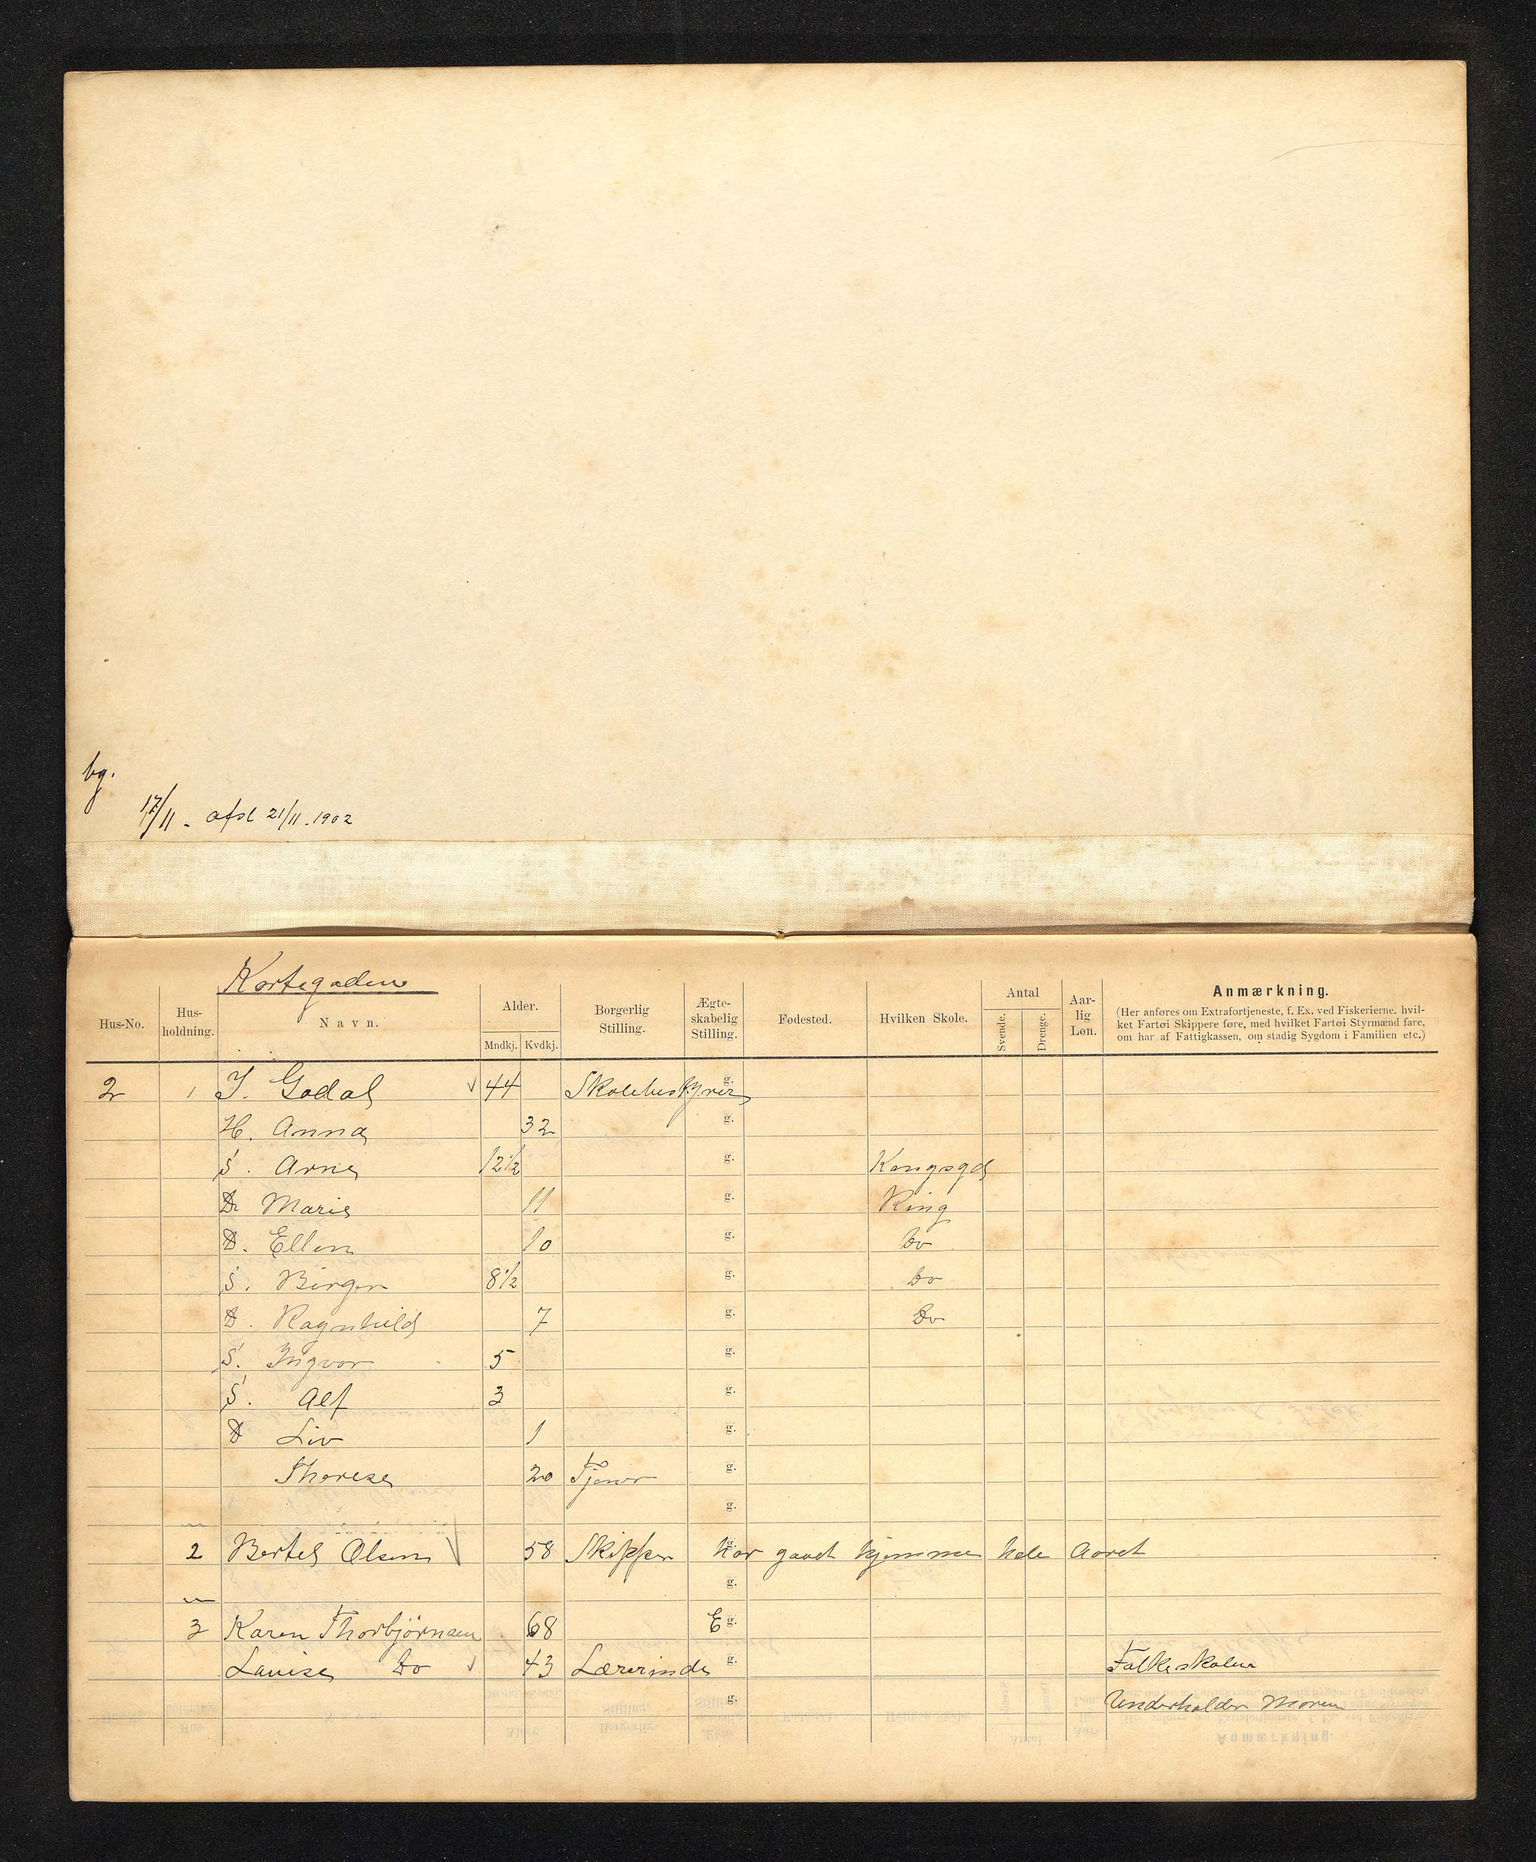 bg.
17/11 - afsl 21/11 - 1902
Kortegaden
Hus-No. Hus-holdning. Navn. Alder. Mndkj. Kvdkj. Borgerlig Stilling. Ægte-skabelig Stilling. Fødested. Hvilken Skole. Antal Svende. Drenge. Aar-lig Løn. Anmærkning.
(Her anføres om Extrafortjeneste, f. Ex. ved Fiskerierne, hvil-
ket Fartøi Skippere føre, med hvilket Fartøi Styrmænd fare,
om har af Fattigkassen, om stadig Sygdom i Familien etc.)
2 1 I. Godal 44 Skolebestyrer g.
H. Anna 32 g.
S. Arne 12 1/2 g. Kongsgd
D. Marie 11 g. Ring
D. Ellen 10 g. Do
S. Birger 8 1/2 g. Do
D. Ragnhild 7 g. Do
S. Ingvar 5 g.
S. Alf 3 g.
D. Liv 1 g.
Therese 20 Tjener g.
g.
2 Bertel Olsen 58 Skipper g. har gaaet hjemme hele Aaret
g.
3 Karen Thorbjørnsen 68 E g.
Louise Do 43 Lærerinde g. Folkeskolen
g. Underholder Moren